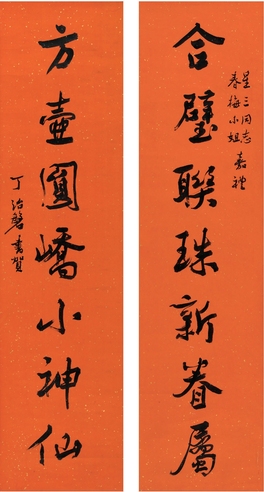 合璧聯珠新眷屬
星三同志
春梅小姐嘉禮
方壺圓嶠小神仙
丁治磐書賀